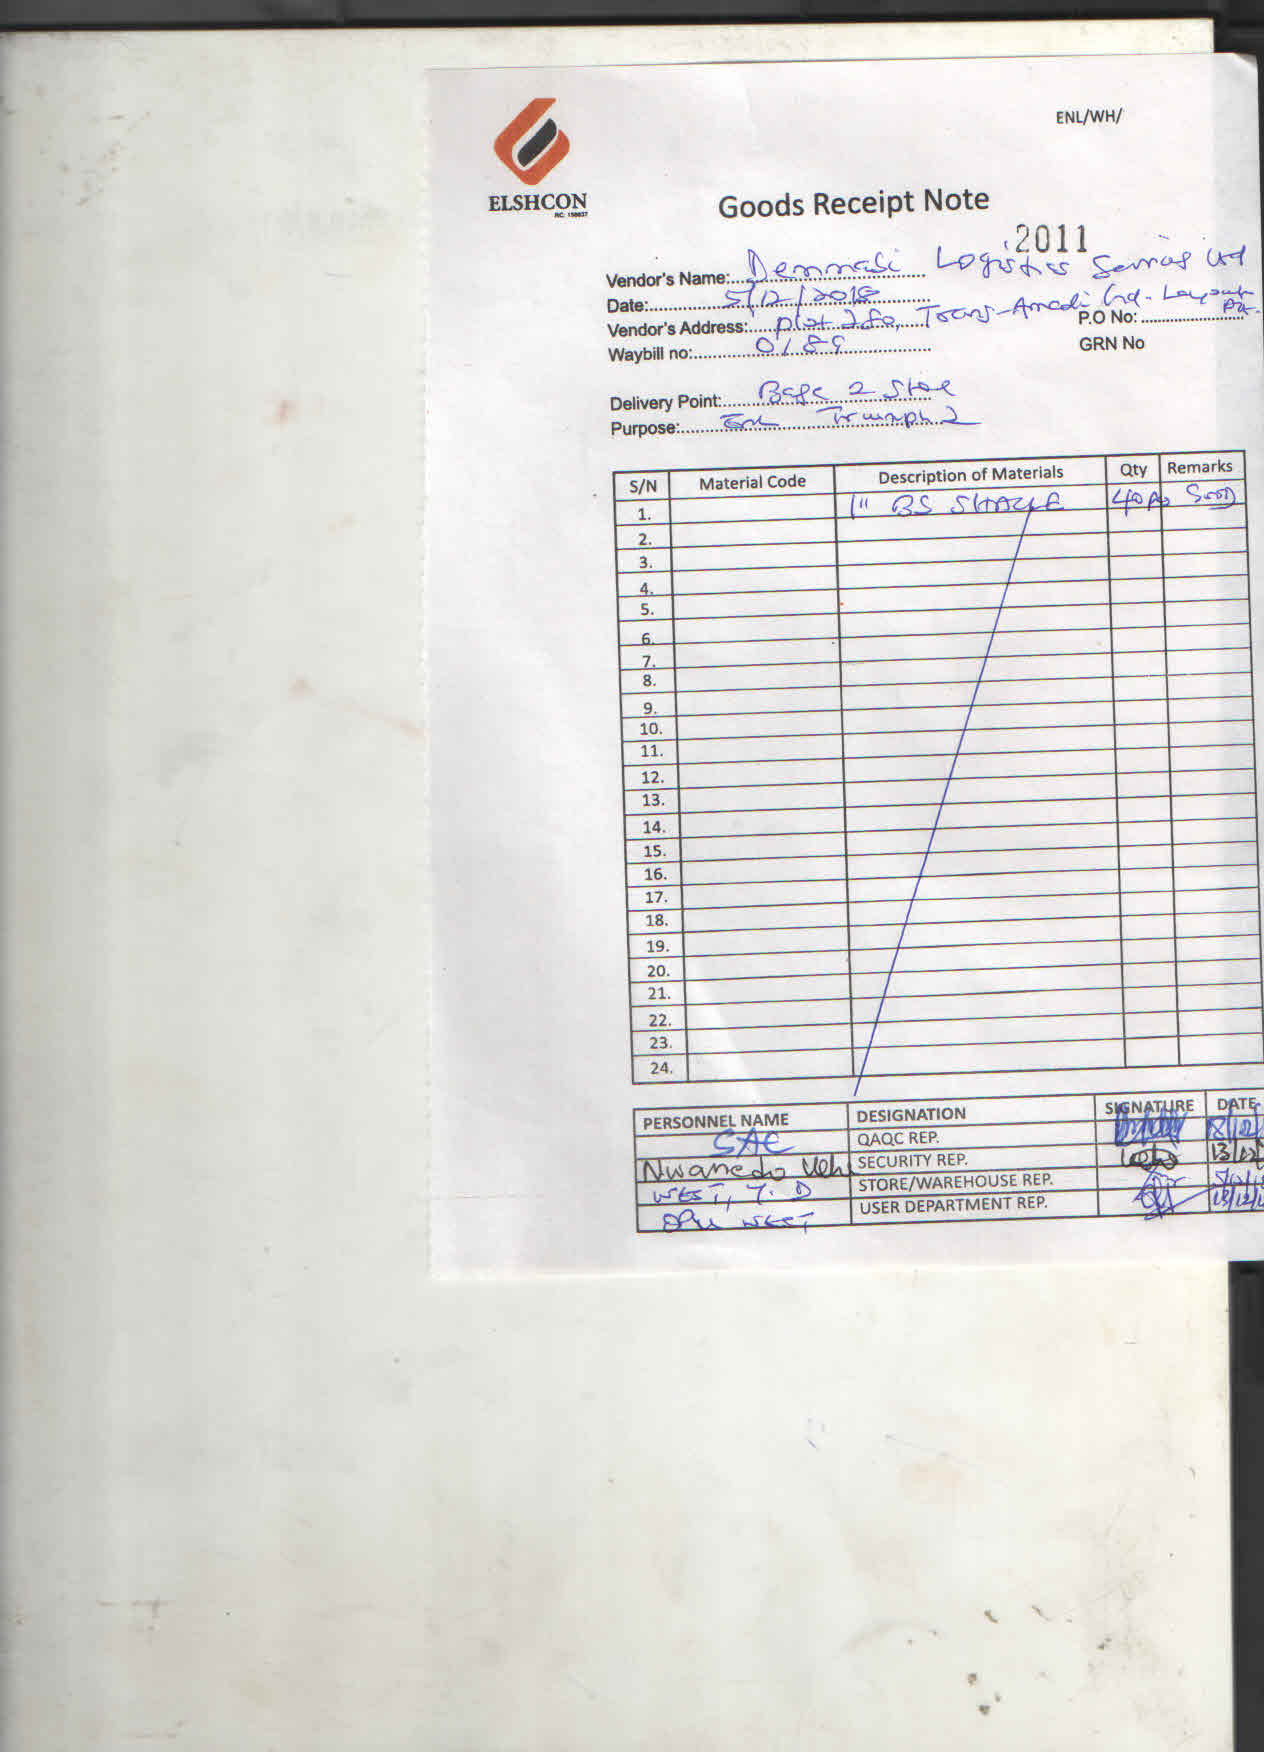 ENL/WH/
ELSHCON
RC: 158637
Goods Receipt Note
2011
Vendor's Name: Demmasi Logistics Services Ltd
Date: 5/12/2018
Vendor's Address: Plot 280, Trans-Amadi Ind. Layout
P.O No:
Waybill no: 0189
GRN No
Delivery Point: Base 2 Store
Purpose: Triumph 2
S/N Material Code Description of Materials Qty Remarks
1. 1" BS SHACKLE 40 Good
2.
3.
4.
5.
6.
7.
8.
9.
10.
11.
12.
13.
14.
15.
16.
17.
18.
19.
20.
21.
22.
23.
24.
PERSONNEL NAME DESIGNATION SIGNATURE DATE
QAQC REP.
Nwanedo SECURITY REP. 13/12
WEST, T. D STORE/WAREHOUSE REP.
WEST USER DEPARTMENT REP. 13/12/